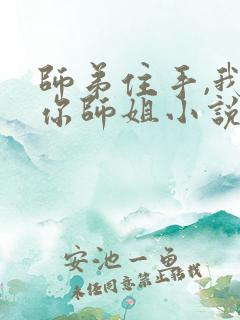 師弟住手,我
你師姐小說
安池一魚
未經同意禁止轉載